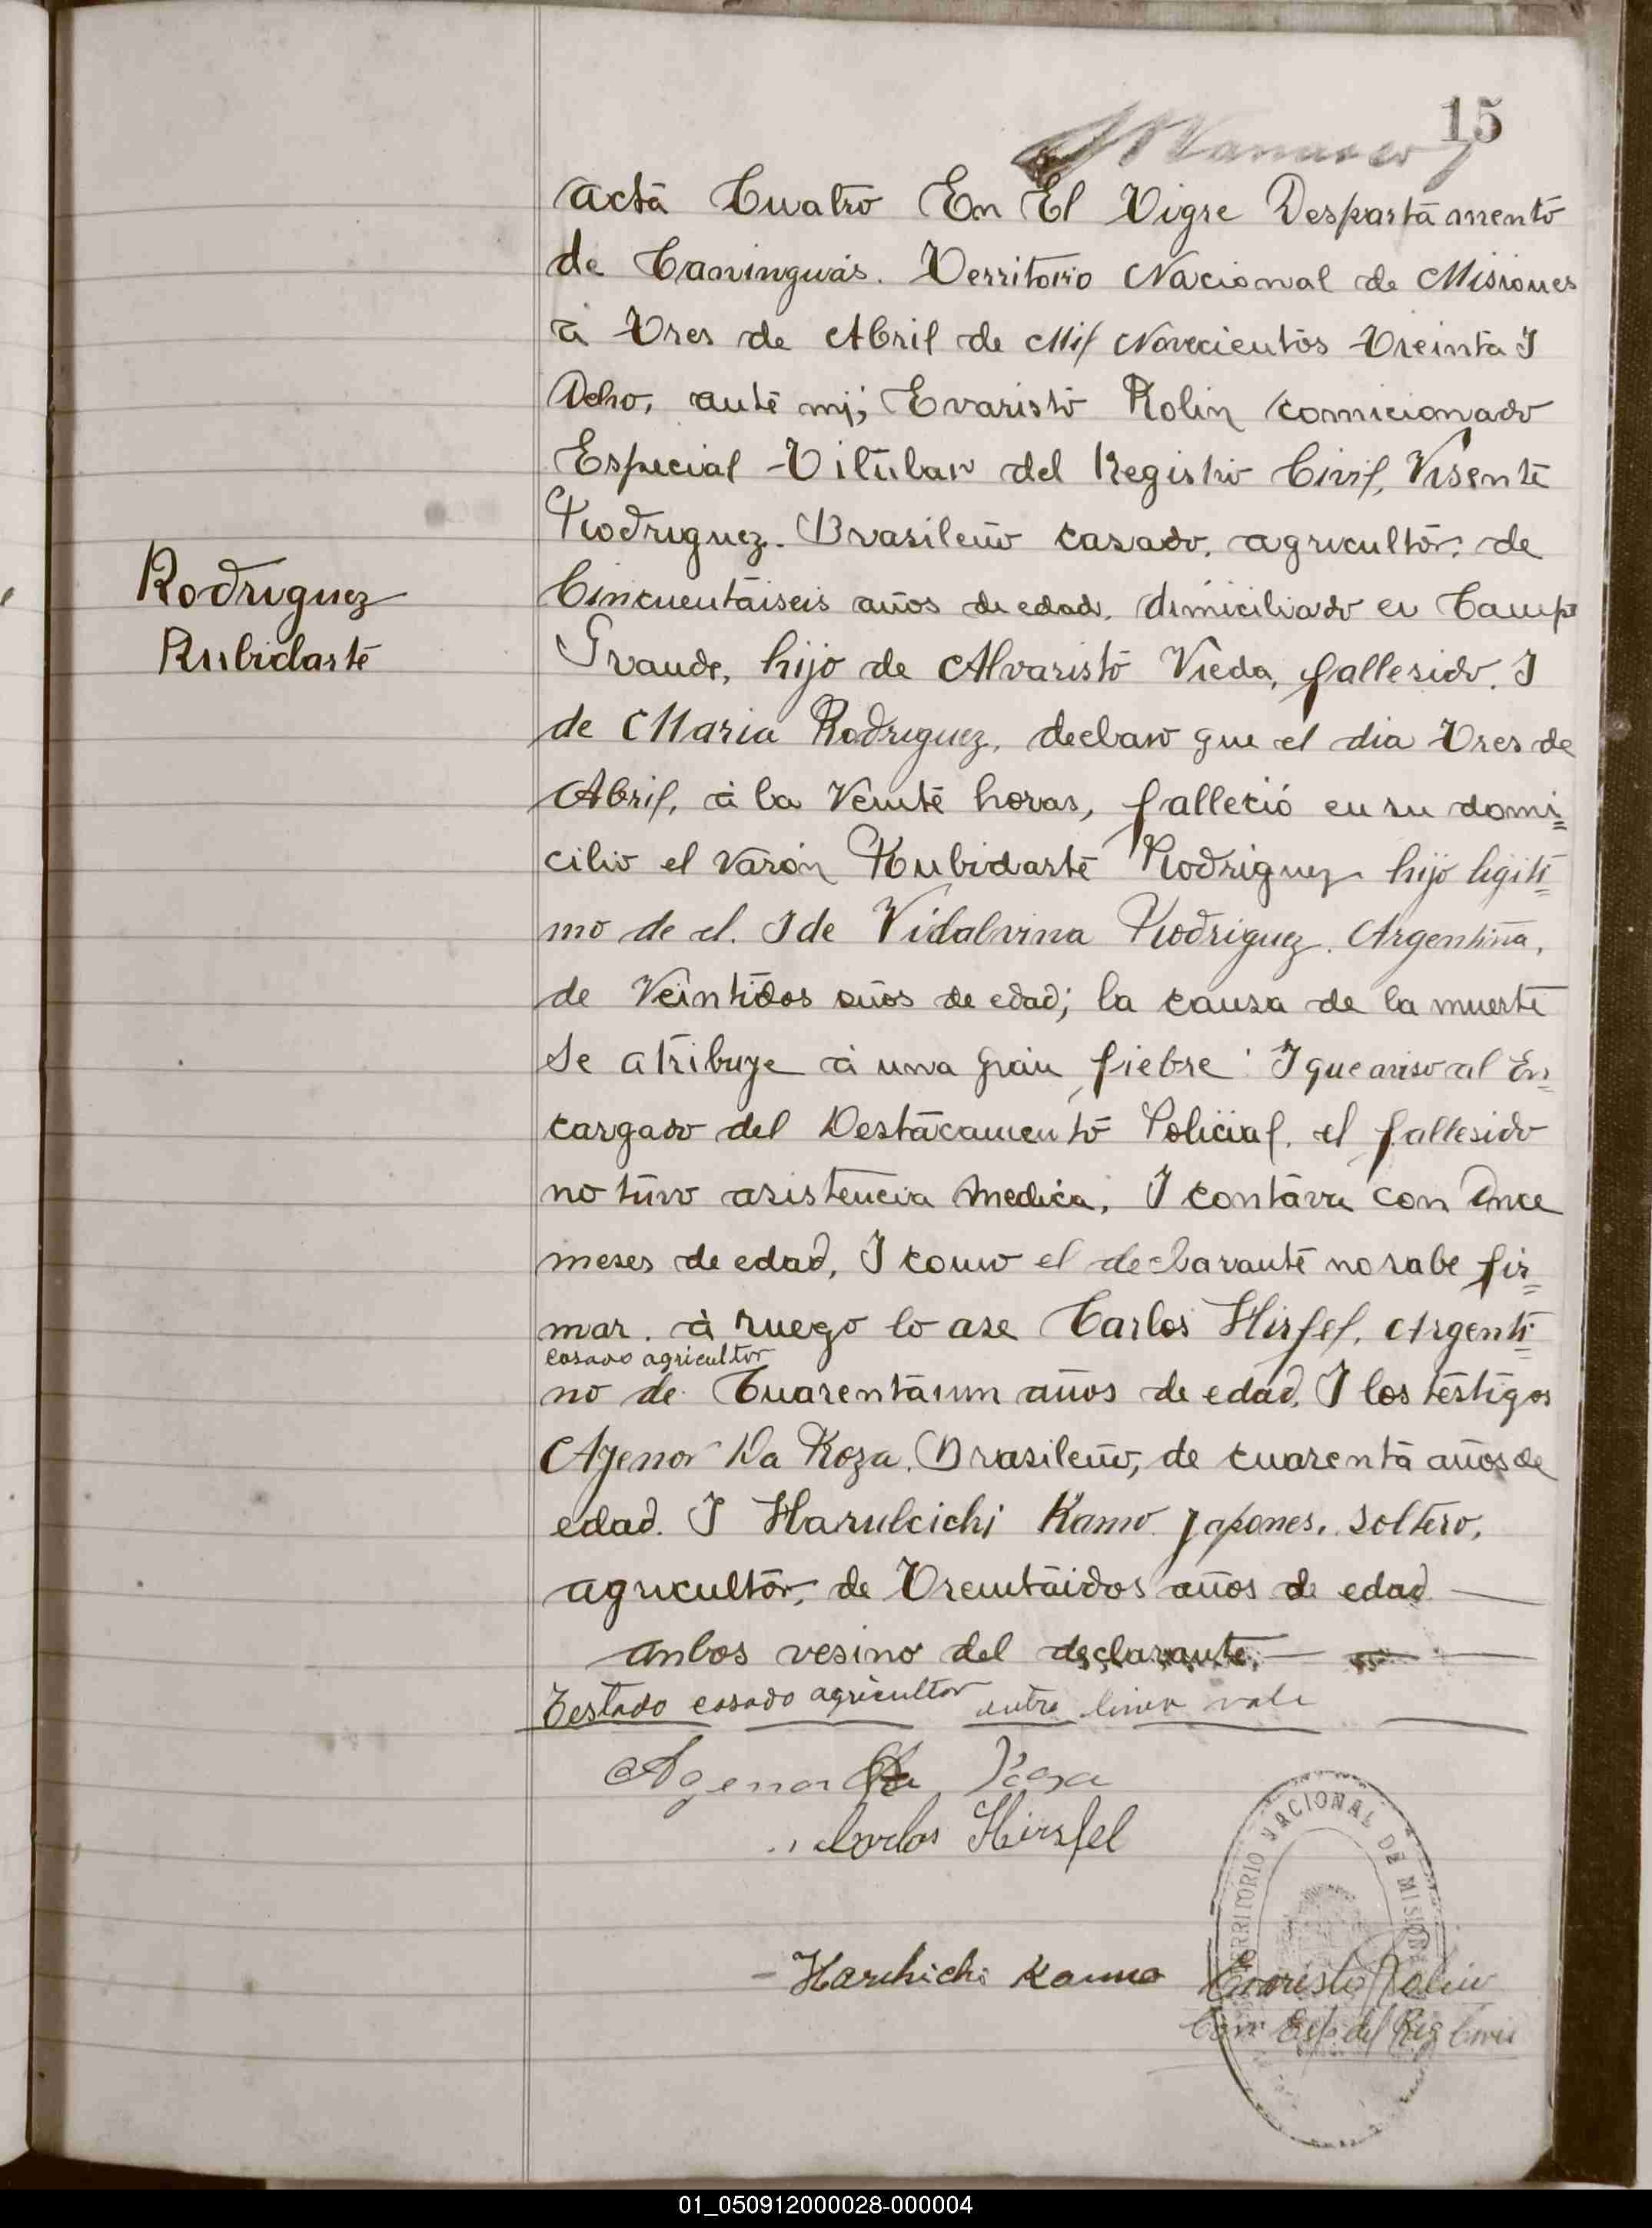 15
Acta Cuatro En El Tigre Despartamento
de Caninguás. Territorio Nacional de Misiones
à Tres de Abril de Mil Novecientos Treinta I
Ocho, ante mi; Evaristo Rolin comicionado
Especial Titular del Registro Civil, Visente
Rodriguez. Brasileño casado, agricultor, de
Cincuentaiseis años de edad, dimiciliado en Campo
Grande, hijo de Alvaristo Vieda, fallesido. I
de Maria Rodriguez, declaro que el dia Tres de
Abril, à la Veinte horas, falleció en su domi=
cilio el varón Rubidarte Rodriguez hijo ligiti=
mo de el. I de Vidalvina Rodriguez. Argentina,
de Veintidos años de edad; la causa de la muerte
Se atribuye à una gran fiebre: I que aviso al En=
cargado del Destacamento Policial, el fallesido
no tuvo asistencia medica, I contava con Once
meses de edad, I como el declarante no sabe fir=
mar. à ruego lo ase Carlos Hirfel, Argenti=
casado agricultor
no de Cuarentaiun años de edad, I los testigos
Agenor Da Roza, Brasileño, de cuarenta años de
edad. I Harulcichi Kamo Japones, soltero,
agricultor, de Treintaidos años de edad —
anbos vesino del declarante. —
Testado casado agricultor entre linea vale
Rodriguez
Rubidarte
Agenor Da Roza
Carlos Hirsfel
TERRITORIO NACIONAL DE MISIONES
- Haruhichi Kamo
Evaristo Rolin
Com Esp del Reg Civil
01_050912000028-000004